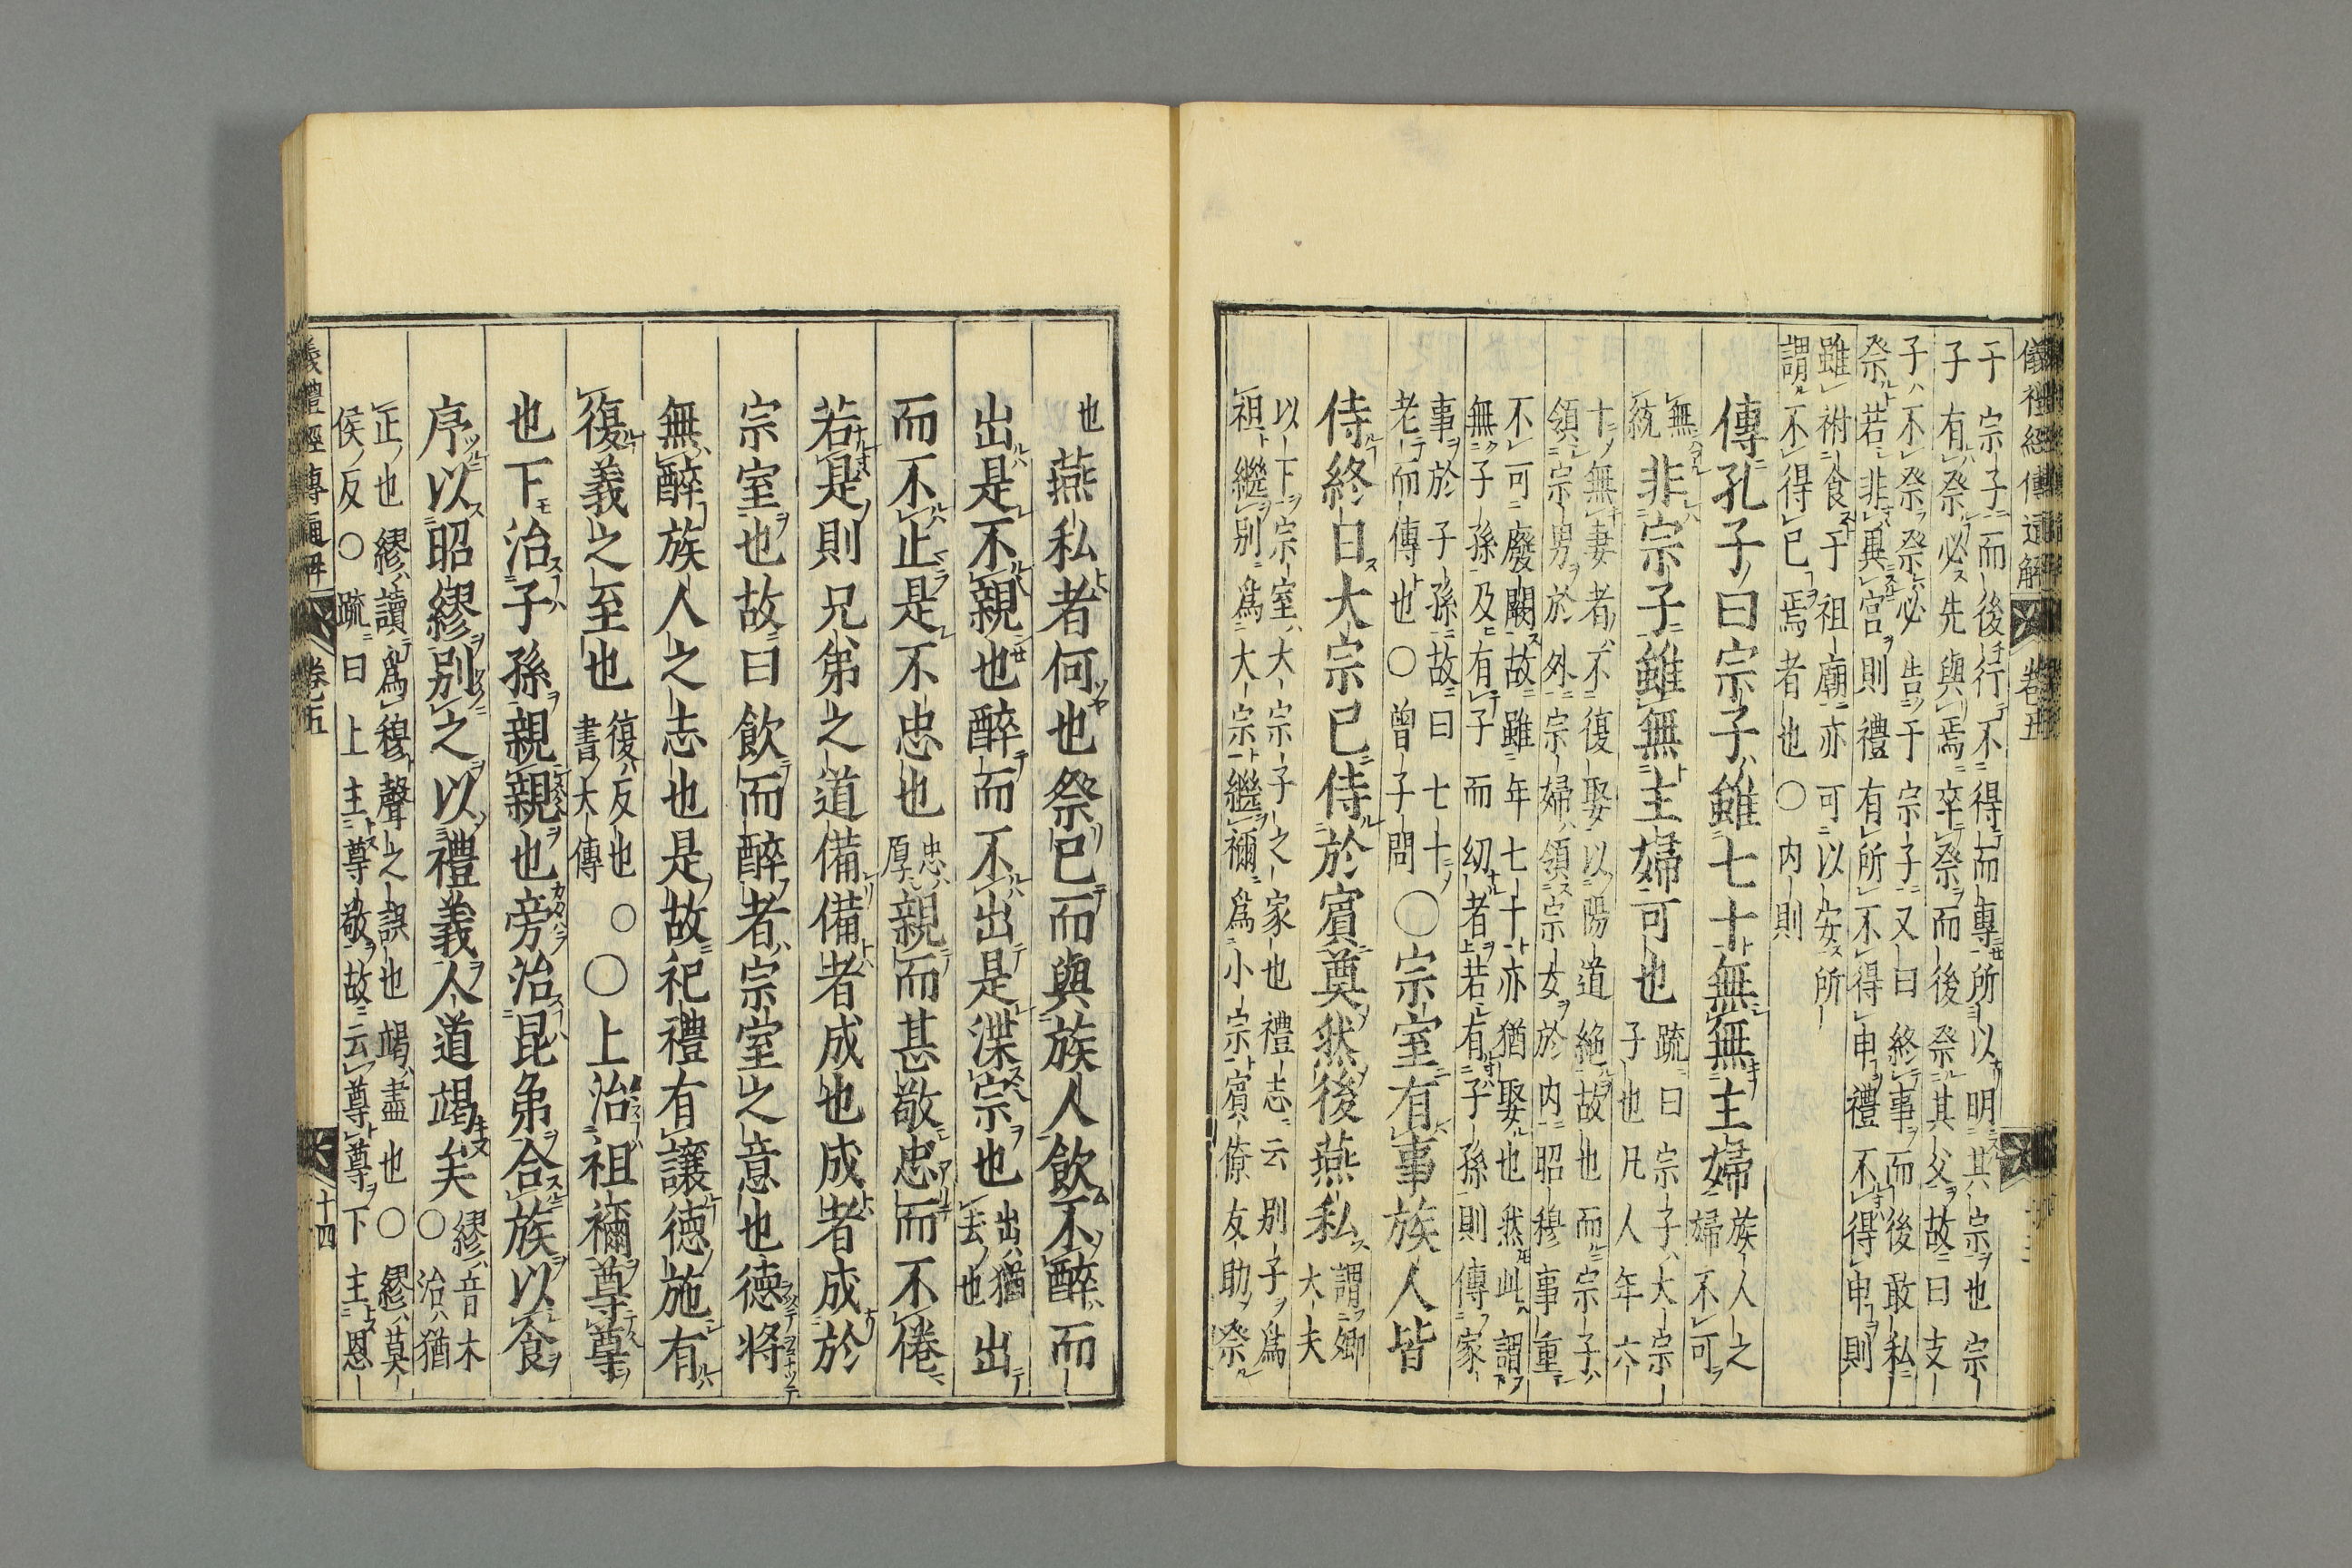 儀禮經傳通解 卷五
于宗子而後行不得而專所以明其宗也宗
子有祭必先與焉卒祭而後祭其父故曰支
子不祭祭必告于宗子又曰終事而後敢私
祭若非異宮則禮有所不得申禮不得申則
雖祔食于祖廟亦可以安所
謂不得已焉者也〇内則
傳孔子曰宗子雖七十無無主婦
族人之
婦不可
無
統
非宗子雖無主婦可也
疏曰宗子大宗
子也凡人年六
十無妻者不復娶以陽道絶故也而宗子
領宗男於外宗婦領宗女於内昭穆事重
不可廢闕故雖年七十亦猶娶也然此謂
無子孫及有子而幼者若有子孫則傳家
事於子孫故曰七十
老而傳也〇曾子問
〇宗室有事族人皆
侍終日大宗已侍於賓奠然後燕私
謂卿
大夫
以下宗室大宗子之家也禮志云別子爲
祖繼別爲大宗繼禰爲小宗賓僚友助祭
也
燕私者何也祭已而與族人飲不醉而
出是不親也醉而不出是渫宗也
出猶
去也
出
而不止是不忠也
忠
厚
親而甚敬忠而不倦
若是則兄弟之道備備者成也成者成於
宗室也故曰飲而醉者宗室之意也德將
無醉族人之志也是故祀禮有讓德施有
復義之至也
復反也〇
書大傳
〇上治祖禰尊尊
也下治子孫親親也旁治昆弟合族以食
序以昭繆別之以禮義人道竭矣
繆音木
〇治猶
正也繆讀爲穆聲之誤也竭盡也〇繆莫
侯反〇疏曰上主尊敬故云尊尊下主恩
儀禮經傳通解 卷五 十四